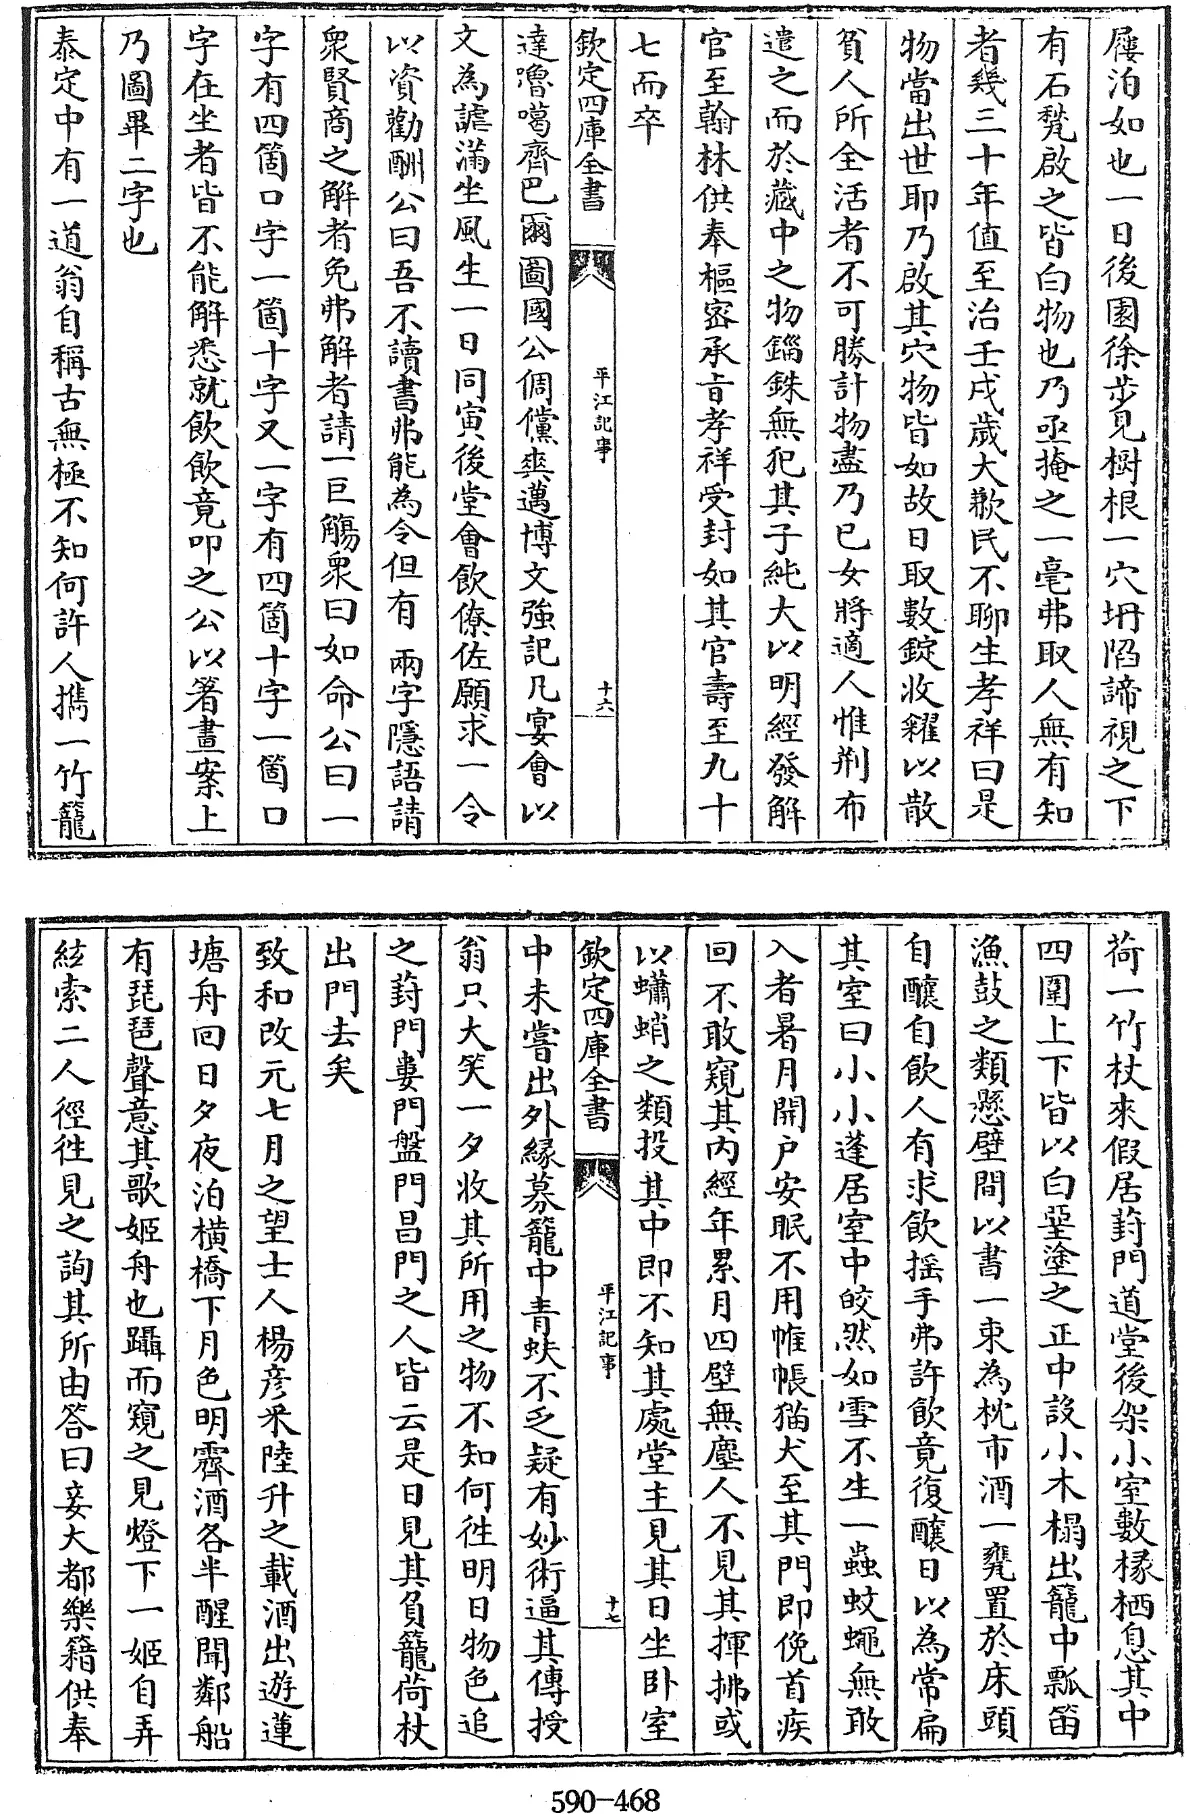 屨泊如也一日後園徐步見樹根一穴坍陷諦視之下
有石甃啟之皆白物也乃亟掩之一毫弗取人無有知
者幾三十年值至治壬戌歲大歉民不聊生孝祥曰是
物當出世耶乃啟其穴物皆如故日取數錠收糴以散
貧人所全活者不可勝計物盡乃已女將適人惟荆布
遣之而於藏中之物錙銖無犯其子純大以明經發解
官至翰林供奉樞密承旨孝祥受封如其官壽至九十
七而卒
欽定四庫全書
平江記事
十六
達嚕噶齊巴爾圖國公倜儻爽邁博文強記凡宴會以
文為謔滿坐風生一日同寅後堂會飲僚佐願求一令
以資勸酬公曰吾不讀書弗能為令但有兩字隱語請
衆賢商之解者免弗解者請一巨觴衆曰如命公曰一
字有四箇口字一箇十字又一字有四箇十字一箇口
字在坐者皆不能解悉就飲飲竟叩之公以箸畫案上
乃圖畢二字也
泰定中有一道翁自稱古無極不知何許人擕一竹籠
荷一竹杖來假居葑門道堂後架小室數椽栖息其中
四圍上下皆以白堊塗之正中設小木榻出籠中瓢笛
漁鼓之類懸壁間以書一束為枕市酒一甕置於床頭
自釀自飲人有求飲搖手弗許飲竟復釀日以為常扁
其室曰小小蓬居室中皎然如雪不生一蟲蚊蠅無敢
入者暑月開户安眠不用帷帳猫犬至其門即俛首疾
回不敢窺其内經年累月四壁無塵人不見其揮拂或
以蠨蛸之類投其中即不知其處堂主見其日坐卧室
欽定四庫全書
平江記事
十七
中未嘗出外緣募籠中青蚨不乏疑有妙術逼其傳授
翁只大笑一夕收其所用之物不知何徃明日物色追
之葑門婁門盤門昌門之人皆云是日見其負籠荷杖
出門去矣
致和改元七月之望士人楊彦采陸升之載酒出遊蓮
塘舟回日夕夜泊橫橋下月色明霽酒各半醒聞鄰船
有琵琶聲意其歌姬舟也躡而窺之見燈下一姬自弄
絃索二人徑徃見之詢其所由答曰妾大都樂籍供奉
590-468